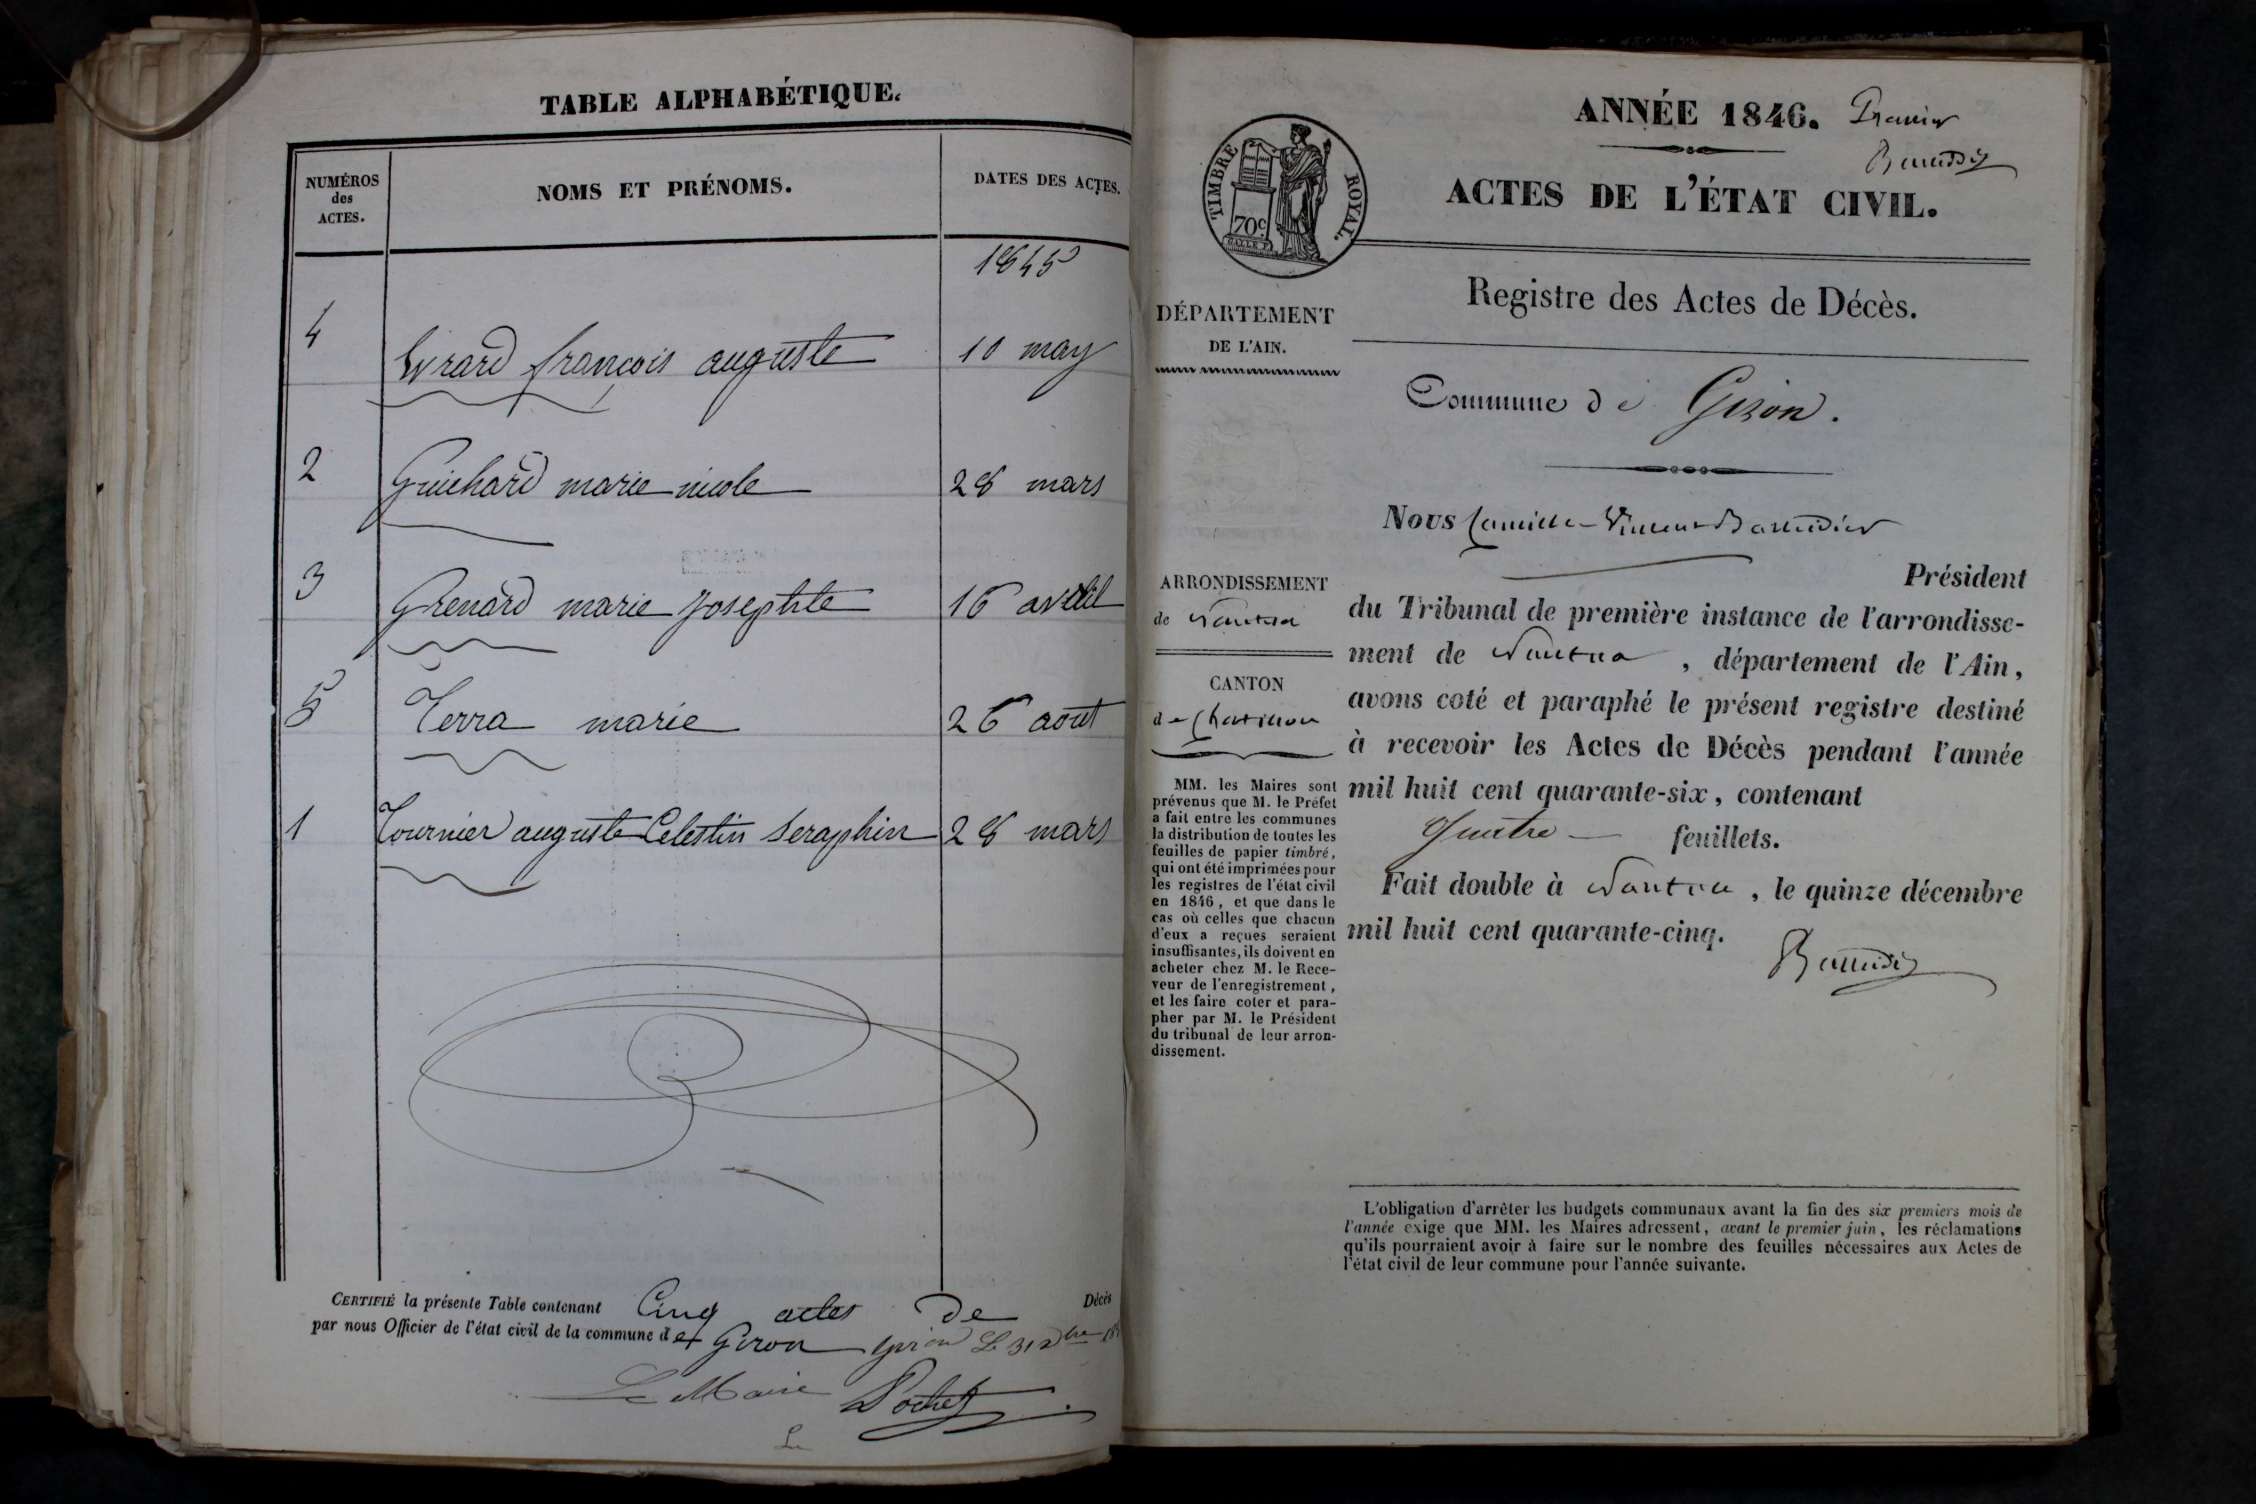 TABLE ALPHABÉTIQUE.
NUMÉROS
des
ACTES.
NOMS ET PRÉNOMS.
DATES DES ACTES.
1845
4 Girard françois auguste 10 may
2 Guichard marie nicole 28 mars
3 Grenard marie Josephte 16 avril
5 Terra marie 26 aout
1 Tournier auguste Celestin Seraphin 28 mars
CERTIFIÉ la présente Table contenant Cinq actes De Décès
par nous Officier de l'état civil de la commune de Giron Giron Le 31 Xbre
Le Maire Pochet
Le
ANNÉE 1846. Premier
ACTES DE L'ÉTAT CIVIL.
TIMBRE ROYAL.
70c
DÉPARTEMENT
DE L'AIN.
Registre des Actes de Décès.
Commune de Giron.
ARRONDISSEMENT
de Nantua
CANTON
de Chatillon
MM. les Maires sont
prévenus que M. le Préfet
a fait entre les communes
la distribution de toutes les
feuilles de papier timbré,
qui ont été imprimées pour
les registres de l'état civil
en 1846, et que dans le
cas où celles que chacun
d'eux a reçues seraient
insuffisantes, ils doivent en
acheter chez M. le Rece-
veur de l'enregistrement,
et les faire coter et para-
pher par M. le Président
du tribunal de leur arron-
dissement.
Nous Camille Vincent
Président
du Tribunal de première instance de l'arrondisse-
ment de Nantua, département de l'Ain,
avons coté et paraphé le présent registre destiné
à recevoir les Actes de Décès pendant l'année
mil huit cent quarante-six, contenant
Quatre feuillets.
Fait double à Nantua, le quinze décembre
mil huit cent quarante-cinq.
L'obligation d'arrêter les budgets communaux avant la fin des six premiers mois de
l'année exige que MM. les Maires adressent, avant le premier juin, les réclamations
qu'ils pourraient avoir à faire sur le nombre des feuilles nécessaires aux Actes de
l'état civil de leur commune pour l'année suivante.